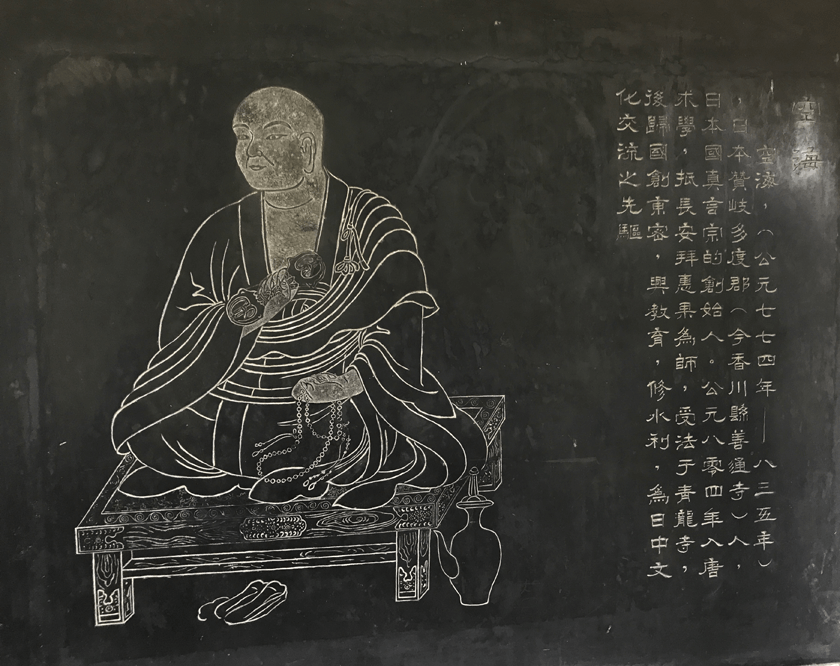 空海
空海,(公元七七四年——八三五年)
,日本贊岐多度郡(今香川縣善通寺)人,
日本國真言宗的創始人。公元八零四年入唐
求學,抵長安拜惠果為師,受法于青龍寺,
後歸國創東密,興教育,修水利,為日中文
化交流之先驅